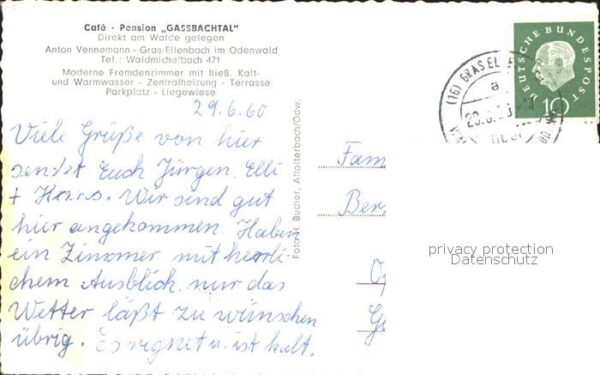 Café - Pension „GASSBACHTAL"
Direkt am Walde gelegen
Anton Vennemann - Gras-Ellenbach im Odenwald
Tel.: Waldmichelbach 471
Moderne Fremdenzimmer mit fließ. Kalt-
und Warmwasser - Zentralheizung - Terrasse
Parkplatz - Liegewiese
29.6.60
Viele Grüße von hier
sendet Euch Jürgen, Elli
+ Hans. Wir sind gut
hier angekommen Haben
ein Zimmer mit herrli-
chem Ausblick nur das
Wetter läßt zu wünschen
übrig. Es regnet u. ist kalt.
Foto-H. Bucher, Affolterbach/Odw.
DEUTSCHE BUNDESPOST
10
(16) GRASEL
a
Fam
Ber
privacy protection
Datenschutz